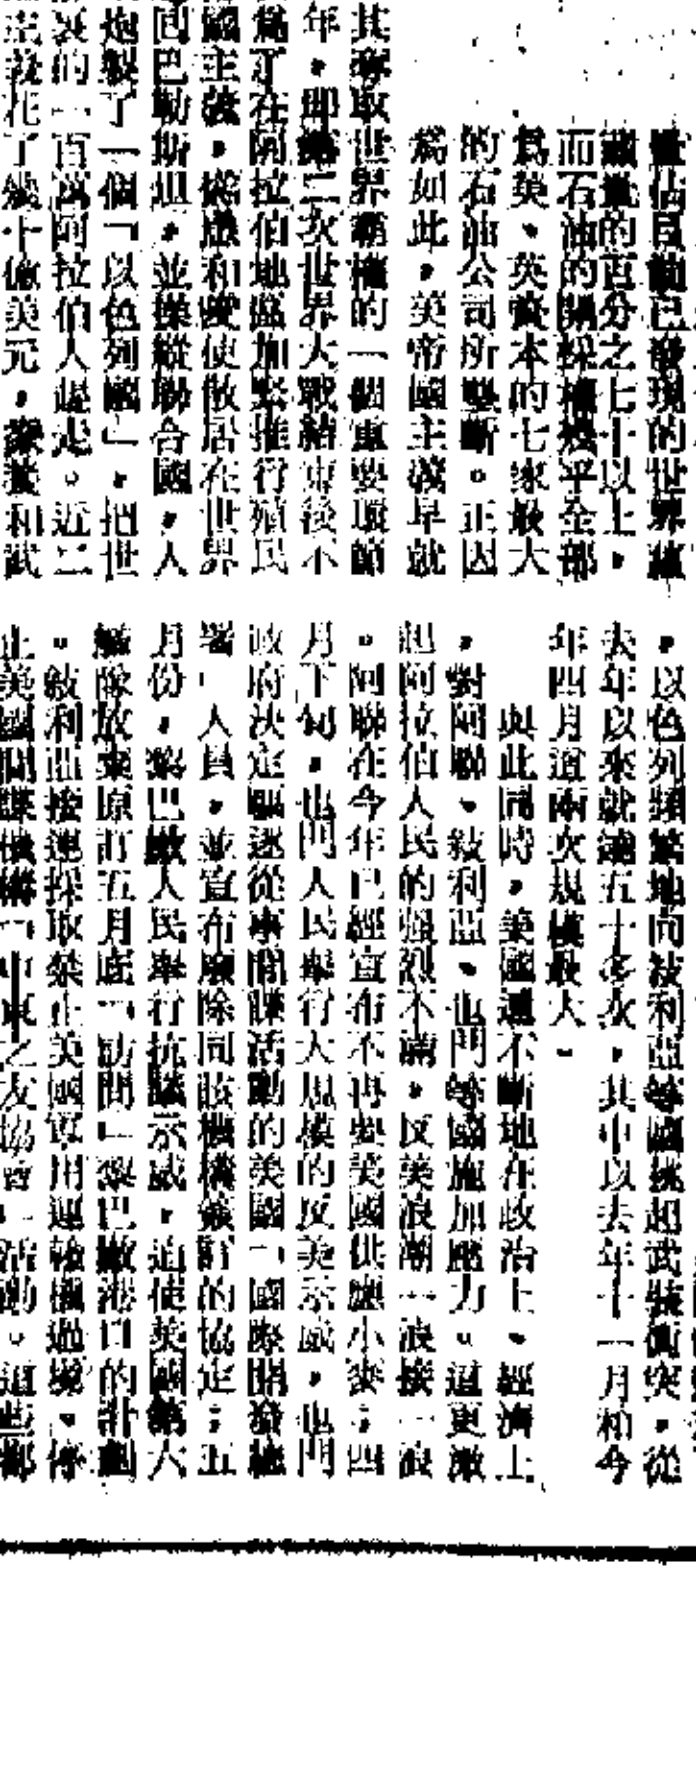 佔目前已發現的世界
的百分之七十以上，
而石油的開採權幾乎全部
爲英、英資本的七家最大
的石油公司所壟斷。正因
爲如此，美帝國主義早就
其奪取世界霸權的一個重要環節
年，即第二次世界大戰結束後不
爲了在阿拉伯地區加緊推行殖民
國主義，慫恿和唆使散居在世界
回巴勒斯坦，並操縱聯合國，人
炮製了一個「以色列國」，把世
裏的一百萬阿拉伯人趕走。近二
主義花了幾十億美元，和武
，以色列頻繁地向敍利亞等國挑起武裝衝突，從
去年以來就達五十多次，其中以去年十一月和今
年四月這兩次規模最大。
與此同時，美國還不斷地在政治上、經濟上
，對阿聯、敍利亞、也門等國施加壓力。這更激
起阿拉伯人民的强烈不滿，反美浪潮一浪接一浪
。阿聯在今年已經宣布不再要美國供應小麥；四
月下旬，也門人民舉行大規模的反美示威，也門
政府決定驅逐從事間諜活動的美國「國際開發總
署」人員，並宣布廢除同該機構簽訂的協定；五
月份，黎巴嫩人民舉行抗議示威，迫使美國第六
艦隊放棄原訂五月底「訪問」黎巴嫩港口的計劃
。敍利亞接連採取禁止美國軍用運輸機過境、停
止美國間諜機構「中東之友協會」活動。這些都